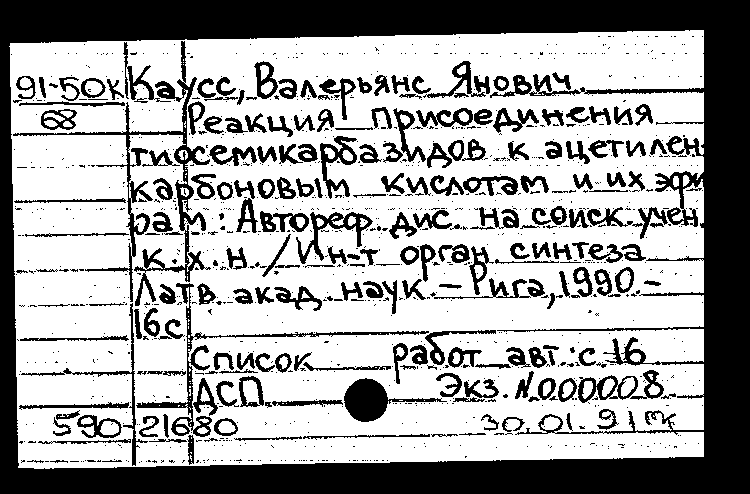 91-50к Каусс, Валерьянс Янович
68 Реакция присоединения
тиосемикарбазидов к ацетилен-
карбоновым кислотам и их эфи
рам: Автореф. дис. на соиск. учен.
к. х. н. / Ин-т орган. синтеза
Латв. акад. наук. - Рига, 1990. -
16с
Список работ авт.: с. 16
ДСП Экз. N 000008
590-21680 30.01.91